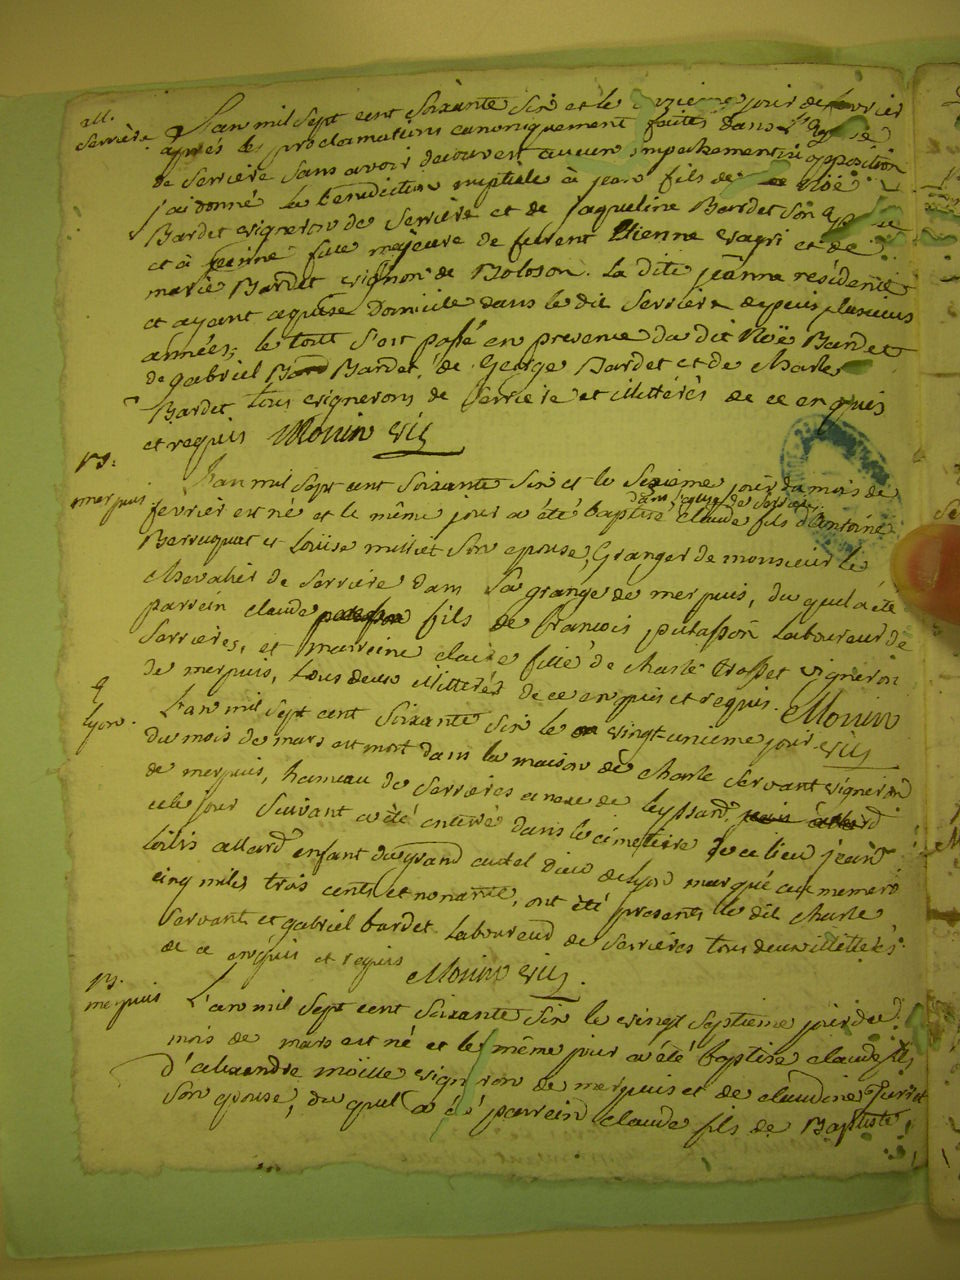 all.
Serriere.
L'an mil sept cent soixante six et le onzieme jour de fevrier
après les proclamations canoniquement faites dans l'Eglise
de Serriere sans avoir decouvert aucun empechement ni opposition
j'ai donné la benediction nuptiale à jean fils de Noë
Bardet vigneron de Serriere et de jaqueline Bardet son epouse
et à jeanne fille majeure de furent Etienne vagri et de
marie Bardet vigneron de Boloson. la dite jeanne résidente
et ayant aquise Domicile dans le dit Serriere depuis plusieurs
années, le tout s'est passé en presence du dit Noë Bardet
de gabriel Bardet, de George Bardet et de charles
Bardet tous vignerons de Serriere et illittérés de ce enquis
et requis Monin vic
merpuis
L'an mil sept cent soixante six et le sezieme jour du mois de
dans l'eglise de Serriere
fevrier est né et le même jour a été baptisé claude fils d'antoine
Berruquat et Loüise milliet son epouse, Granger de monsieur le
chevalier de Serriere dans sa grange de merpuis, du quel a été
parrein claude fils de francois putasson Laboureur de
Serrieres, et marreine claire fille de charle trosset vigneron
de merpuis, tous deux illittérés de ce enquis et requis. Monin
vic
lyon.
L'an mil sept cent soixante six le vingt unieme jour
du mois de mars est mort dans la maison de charle Servant vigneron
de merpuis, hameau de Serrieres annexe de leyssard,
et le jour suivant a été enterré dans le cimetiere de ce lieu jean
loüis allard enfant du grand autel Dieu de lyon marqué au numero
cinq mile trois cents et nonante, ont été presents le dit charle
Servant et gabriel bardet Laboureur de Serrieres tous deux illittérés
de ce enquis et requis Monin vic
merpuis
L'an mil sept cent soixante six le vingt septieme jour du
mois de mars est né et le même jour a été baptisé claude fils
d'alexandre moille vigneron de merpuis et de claudine
son epouse, du quel a été parrein claude fils de Baptiste